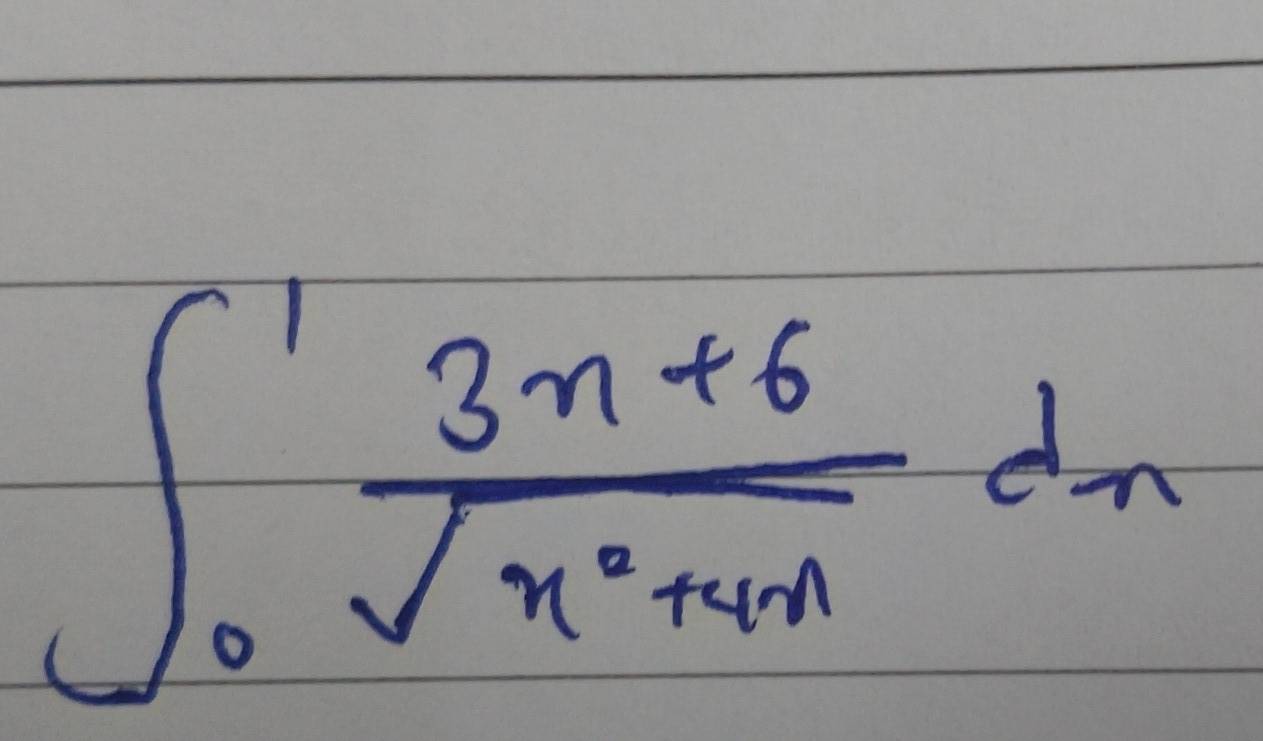 ∫₀¹ (3x+6)/√(x²+4x) dx